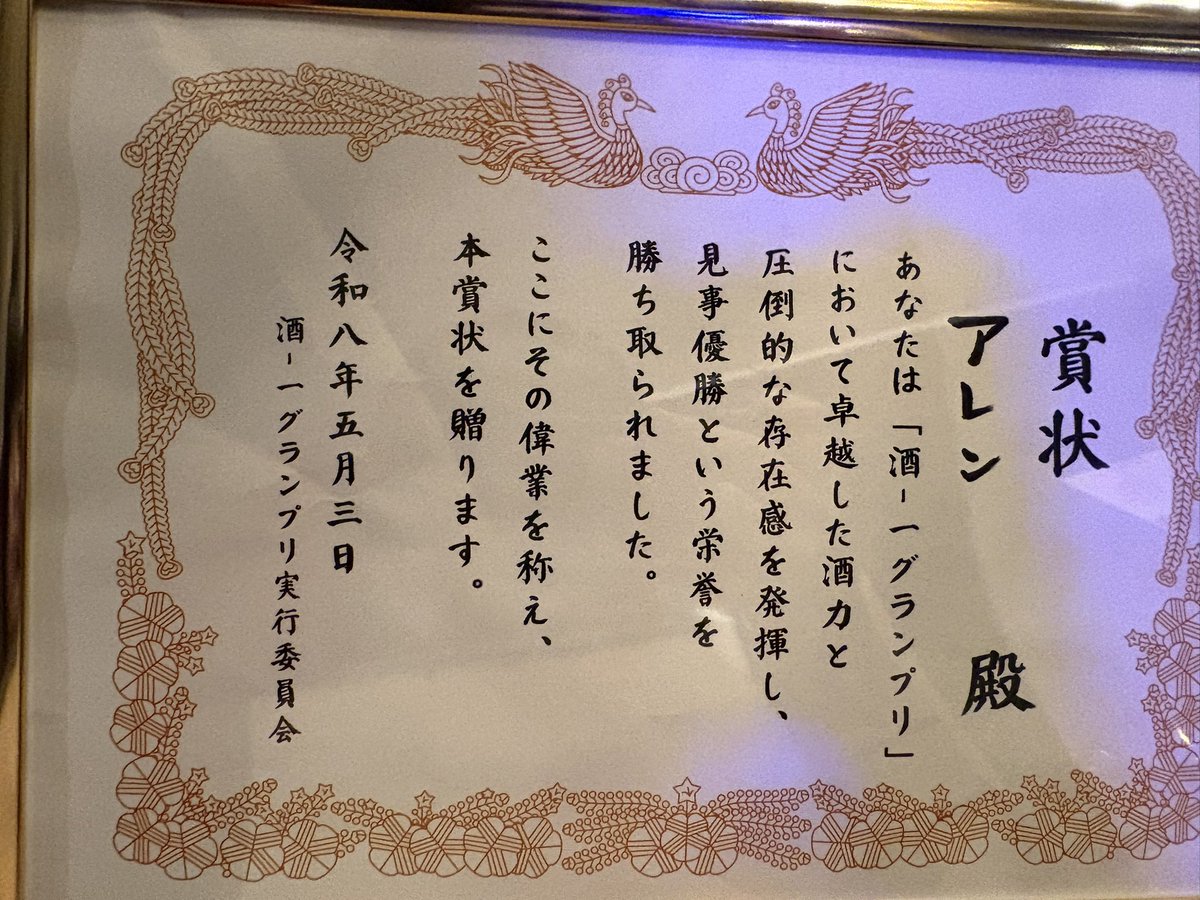 賞状
アレン 殿
あなたは「酒-一グランプリ」
において卓越した酒力と
圧倒的な存在感を発揮し、
見事優勝という栄誉を
勝ち取られました。
ここにその偉業を称え、
本賞状を贈ります。
令和八年五月三日
酒-一グランプリ実行委員会